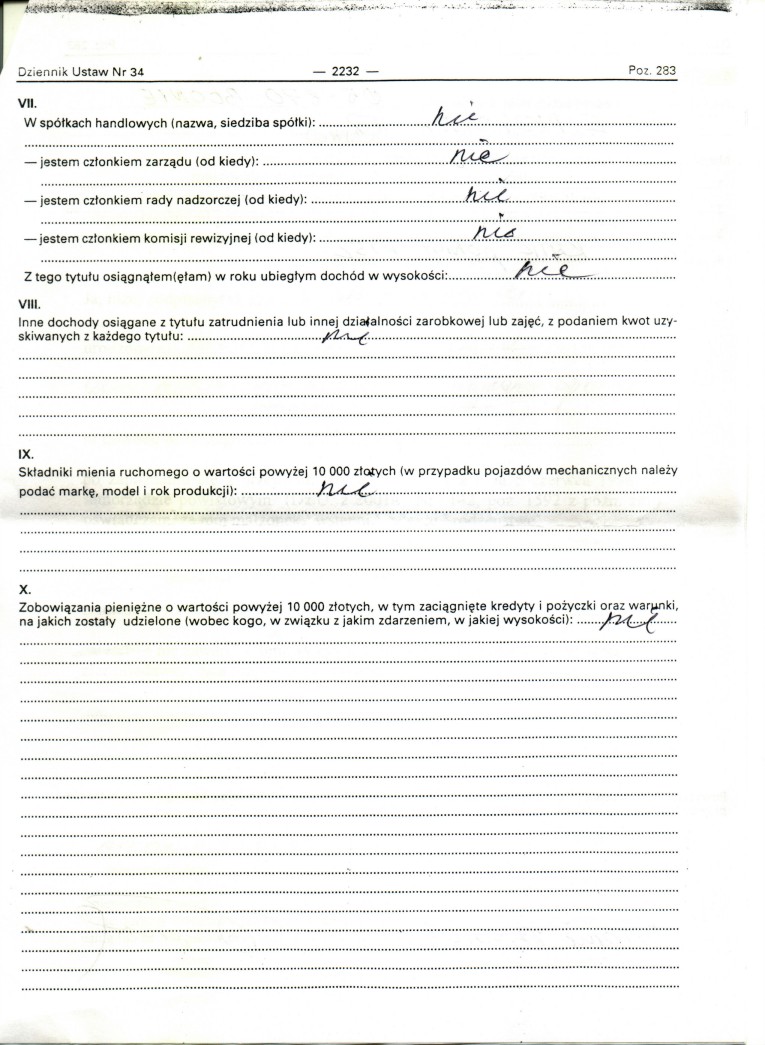 Dziennik Ustaw Nr 34 — 2232 — Poz. 283
VII.
W spółkach handlowych (nazwa, siedziba spółki): nie
— jestem członkiem zarządu (od kiedy): nie
— jestem członkiem rady nadzorczej (od kiedy): nie
— jestem członkiem komisji rewizyjnej (od kiedy): nie
Z tego tytułu osiągnąłem(ęłam) w roku ubiegłym dochód w wysokości: nie
VIII.
Inne dochody osiągane z tytułu zatrudnienia lub innej działalności zarobkowej lub zajęć, z podaniem kwot uzy-
skiwanych z każdego tytułu: nie
IX.
Składniki mienia ruchomego o wartości powyżej 10 000 złotych (w przypadku pojazdów mechanicznych należy
podać markę, model i rok produkcji): nie
X.
Zobowiązania pieniężne o wartości powyżej 10 000 złotych, w tym zaciągnięte kredyty i pożyczki oraz warunki,
na jakich zostały udzielone (wobec kogo, w związku z jakim zdarzeniem, w jakiej wysokości): nie